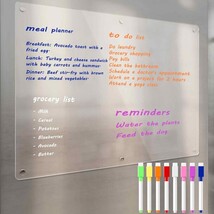 meal planner
Breakfast: Avocado toast with a
fried egg
Lunch: Turkey and cheese sandwich
with baby carrots and hummus
Dinner: Beef stir-fry with brown
rice and mixed vegetables
to do list
Do laundry
Grocery shopping
Pay bills
Clean the bathroom
Schedule a doctor's appointment
Work on a project for 2 hours
Attend a yoga class
grocery list
- Milk
- Cereal
- Potatoes
- Blueberries
- Avocado
- Butter
reminders
Water the plants
Feed the dog